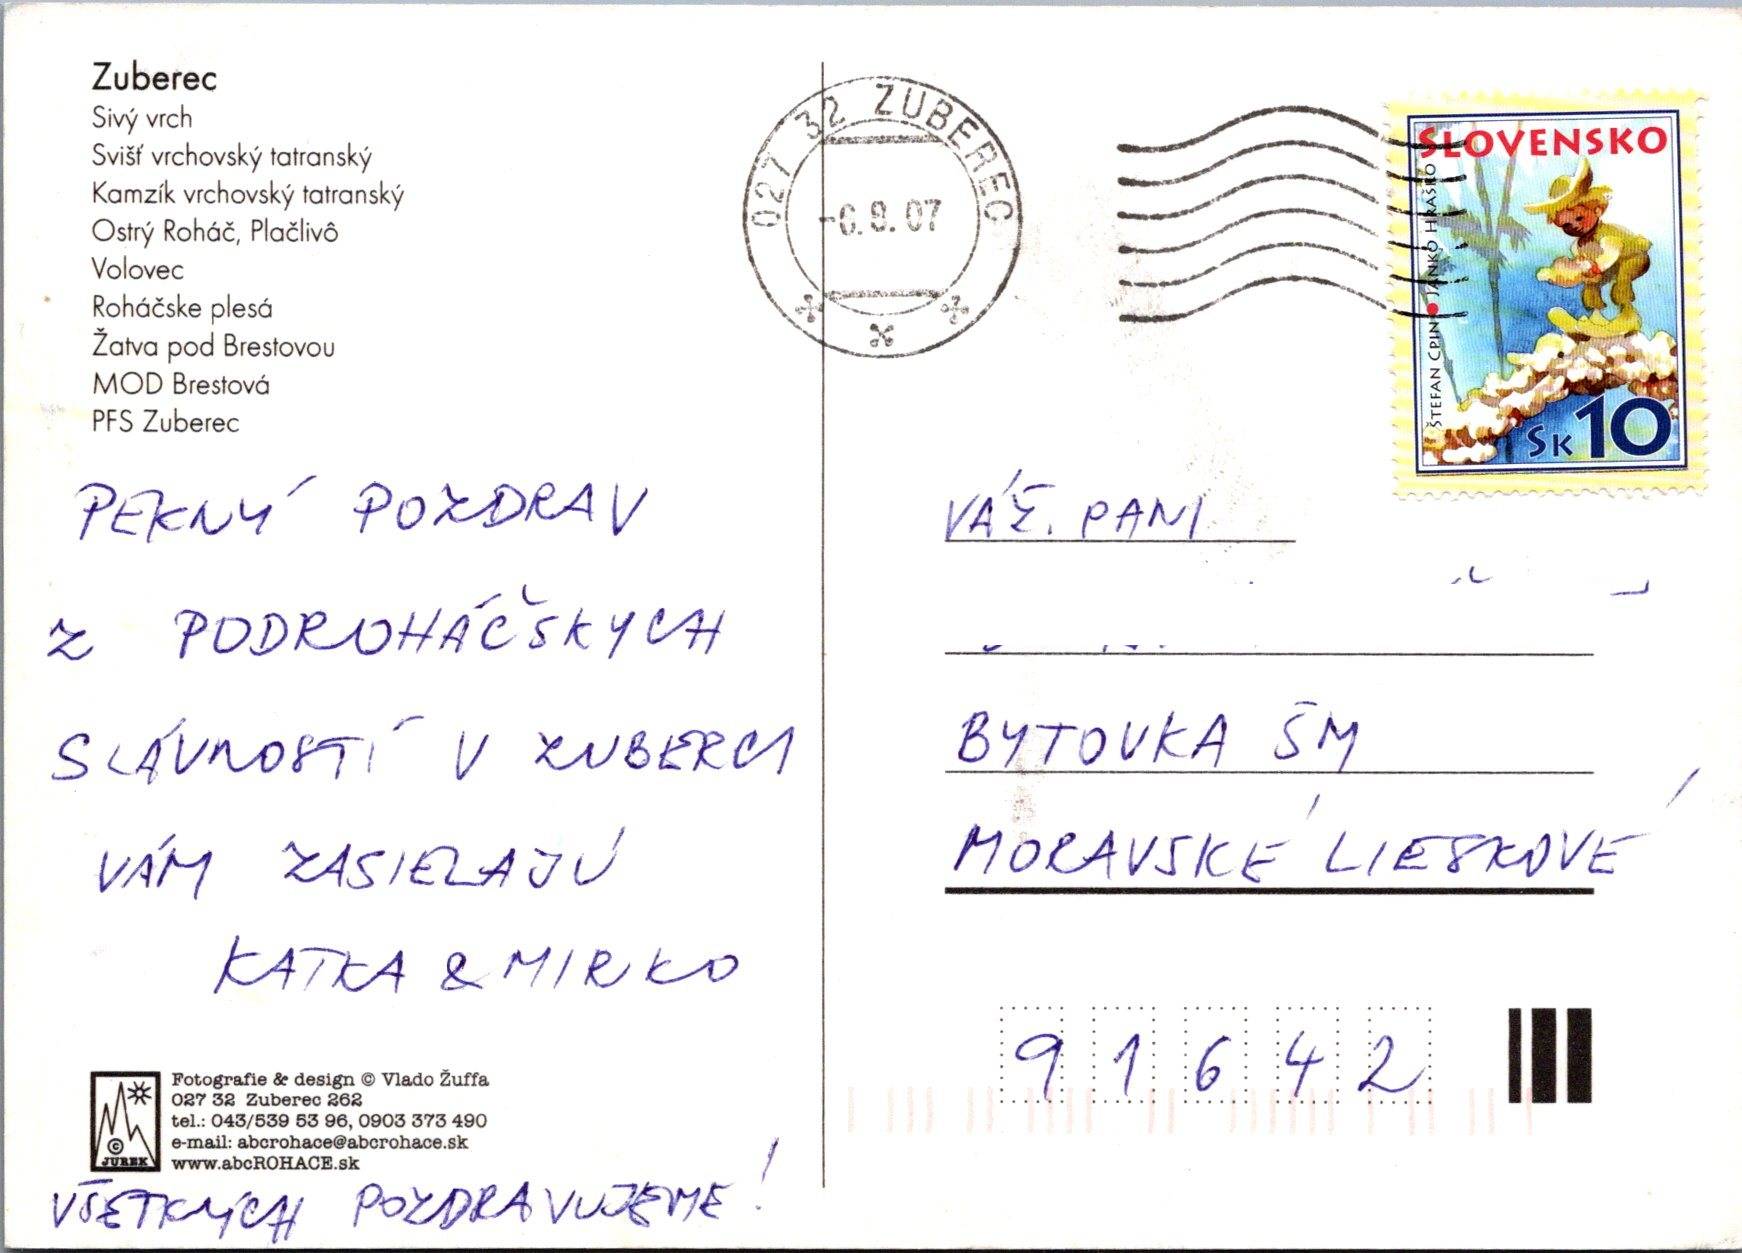 Zuberec
Sivý vrch
Svišť vrchovský tatranský
Kamzík vrchovský tatranský
Ostrý Roháč, Plačlivô
Volovec
Roháčske plesá
Žatva pod Brestovou
MOD Brestová
PFS Zuberec
PEKNÝ POZDRAV
Z PODROHÁČSKYCH
SLÁVNOSTÍ V ZUBERCI
VÁM ZASIELAJÚ
KATKA & MIRKO
© JUREK
Fotografie & design © Vlado Žuffa
027 32 Zuberec 262
tel.: 043/539 53 96, 0903 373 490
e-mail: abcrohace@abcrohace.sk
www.abcROHACE.sk
VŠETKÝCH POZDRAVUJEME!
027 32 ZUBEREC
SLOVENSKO
ŠTEFAN CPIN • JANKO HRAŠKO
Sk 10
VÁŽ. PANI
BYTOVKA ŠM
MORAVSKÉ LIESKOVÉ
91642